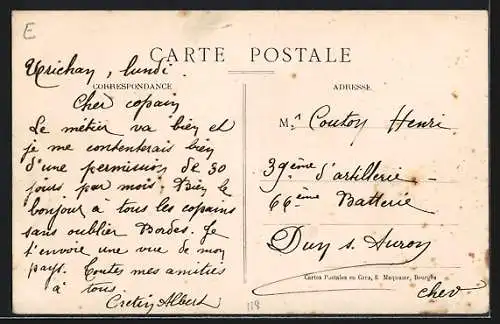 E
CARTE POSTALE
lundi.
CORRESPONDANCE
Cher copain
Le métier va bien et
je me contenterais bien
d'une permission de 30
jours par mois. Bien le
bonjour à tous les copains
sans oublier Bordes. Je
t'envoie une vue de mon
pays. Toutes mes amitiés
à tous.
Cretin Albert
ADRESSE
M.r Coutoy Henri
39ème d'artillerie
66ème Batterie
Duy s. Auron
Cartes Postales en Gros, E. Maquaire, Bourges
Cher
118